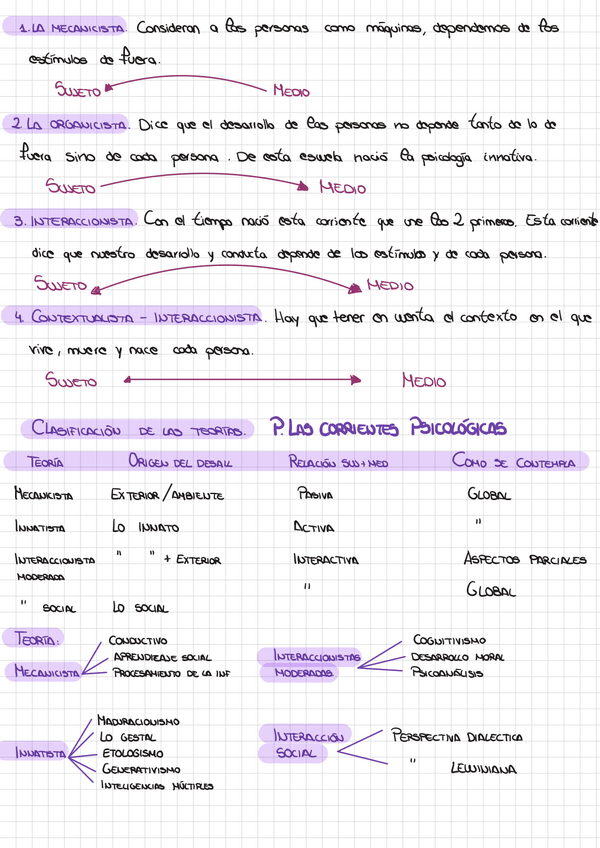 1. LA MECANICISTA. Consideran a las personas como máquinas, dependemos de los
estímulos de fuera.
SUJETO MEDIO
2 LA ORGANICISTA. Dice que el desarrollo de las personas no depende tanto de lo de
fuera sino de cada persona. De esta escuela nació la psicología innativa.
SUJETO MEDIO
3. INTERACCIONISTA. Con el tiempo nació esta corriente que une las 2 primeras. Esta corriente
dice que nuestro desarrollo y conducta depende de los estímulos y de cada persona.
SUJETO MEDIO
4. CONTEXTUALISTA - INTERACCIONISTA. Hay que tener en cuenta el contexto en el que
vive, muere y nace cada persona.
SUJETO MEDIO
CLASIFICACIÓN DE LAS TEORÍAS. P. LAS CORRIENTES PSICOLÓGICAS
TEORÍA ORIGEN DEL DESALL RELACIÓN SUJ+MED COMO SE CONTEMPLA
MECANICISTA EXTERIOR/AMBIENTE PASIVA GLOBAL
INNATISTA LO INNATO ACTIVA "
INTERACCIONISTA " " + EXTERIOR INTERACTIVA ASPECTOS PARCIALES
MODERADA
" SOCIAL LO SOCIAL " GLOBAL
TEORÍA:
MECANICISTA
CONDUCTIVO
APRENDIZAJE SOCIAL
PROCESAMIENTO DE LA INF
INTERACCIONISTAS
MODERADAS
COGNITIVISMO
DESARROLLO MORAL
PSICOANÁLISIS
INNATISTA
MADURACIONISMO
LO GESTAL
ETOLOGISMO
GENERATIVISMO
INTELIGENCIAS MÚLTIPLES
INTERACCIÓN
SOCIAL
PERSPECTIVA DIALECTICA
" LEWINIANA